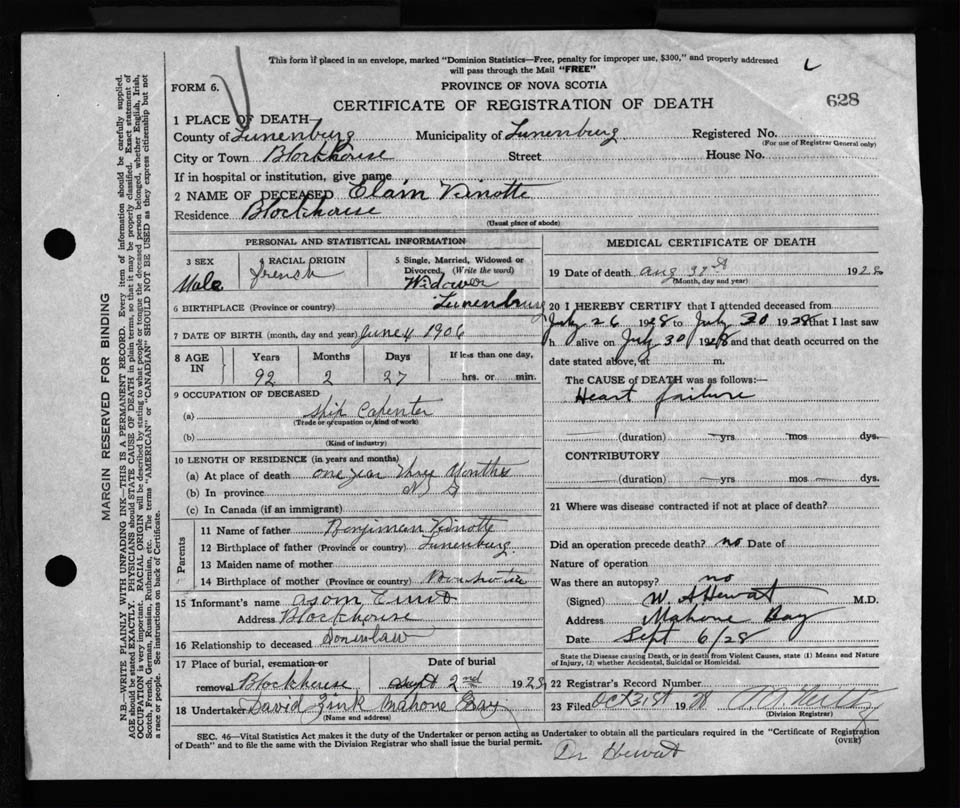 This form if placed in an envelope, marked "Dominion Statistics—Free, penalty for improper use, $300," and properly addressed
will pass through the Mail "FREE"
FORM 6.
PROVINCE OF NOVA SCOTIA
CERTIFICATE OF REGISTRATION OF DEATH
628
1 PLACE OF DEATH—
County of Lunenburg Municipality of Lunenburg Registered No.
(For use of Registrar General only)
City or Town Blockhouse Street House No.
If in hospital or institution, give name
2 NAME OF DECEASED Elam Vinotte
Residence Blockhouse
(Usual place of abode)
PERSONAL AND STATISTICAL INFORMATION
3 SEX Male
4 RACIAL ORIGIN French
5 Single, Married, Widowed or
Divorced, (Write the word)
Widower
6 BIRTHPLACE (Province or country) Lunenburg
7 DATE OF BIRTH (month, day and year) June 4 1906
8 AGE IN
Years Months Days If less than one day,
92 2 27 hrs. or min.
9 OCCUPATION OF DECEASED
(a) Ship Capenter
(Trade or occupation or kind of work)
(b)
(Kind of industry)
10 LENGTH OF RESIDENCE (in years and months)
(a) At place of death one year three Months
(b) In province N S
(c) In Canada (if an immigrant)
Parents
11 Name of father Benjiman Vinotte
12 Birthplace of father (Province or country) Lunenburg
13 Maiden name of mother
14 Birthplace of mother (Province or country)
15 Informant's name
Address Blockhouse
16 Relationship to deceased Soninlaw
17 Place of burial, cremation or Date of burial
removal Blockhouse Sept 2nd 1928
18 Undertaker David Zink Mahone Bay
(Name and address)
MEDICAL CERTIFICATE OF DEATH
19 Date of death Aug 31st 1928
(Month, day and year)
20 I HEREBY CERTIFY that I attended deceased from
July 26 1928 to July 30 1928 that I last saw
h alive on July 30 1928 and that death occurred on the
date stated above, at m.
The CAUSE of DEATH was as follows:—
Heart failure
(duration) yrs mos dys.
CONTRIBUTORY
(duration) yrs. mos. dys.
21 Where was disease contracted if not at place of death?
Did an operation precede death? no Date of
Nature of operation
Was there an autopsy? no
(Signed) W. A Hewat M.D.
Address Mahone Bay
Date Sept 6/28
State the Disease causing Death, or in death from Violent Causes, state (1) Means and Nature
of Injury, (2) whether Accidental, Suicidal or Homicidal.
22 Registrar's Record Number
23 Filed Oct 31st 1928
(Division Registrar)
SEC. 46—Vital Statistics Act makes it the duty of the Undertaker or person acting as Undertaker to obtain all the particulars required in the "Certificate of Registration
of Death" and to file the same with the Division Registrar who shall issue the burial permit.
(OVER)
Dr Hewat
MARGIN RESERVED FOR BINDING
N.B.—WRITE PLAINLY WITH UNFADING INK—THIS IS A PERMANENT RECORD. Every item of information should be carefully supplied.
AGE should be stated EXACTLY. PHYSICIANS should STATE CAUSE OF DEATH in plain terms, so that it may be properly classified. Exact statement of
OCCUPATION is very important. RACIAL ORIGIN will be described by stating to what people or tongue the deceased person belonged, whether English, Irish,
Scotch, French, German, Russian, Ruthenian, etc. The terms "AMERICAN" or "CANADIAN" SHOULD NOT BE USED as they express citizenship but not
a race or people. See instructions on back of Certificate.